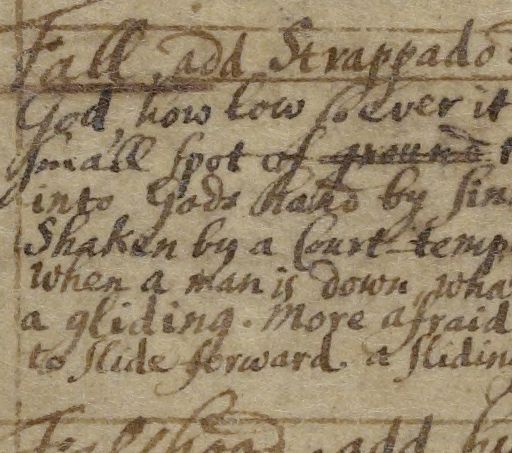 Fall, add Strappado
God, how low soever it
small spot of ground
into Gods hand by sin
Shaken by a Court-temp
when a man is down, wha
a gliding. More afraid
to slide forward. a sliding
Falshood, add